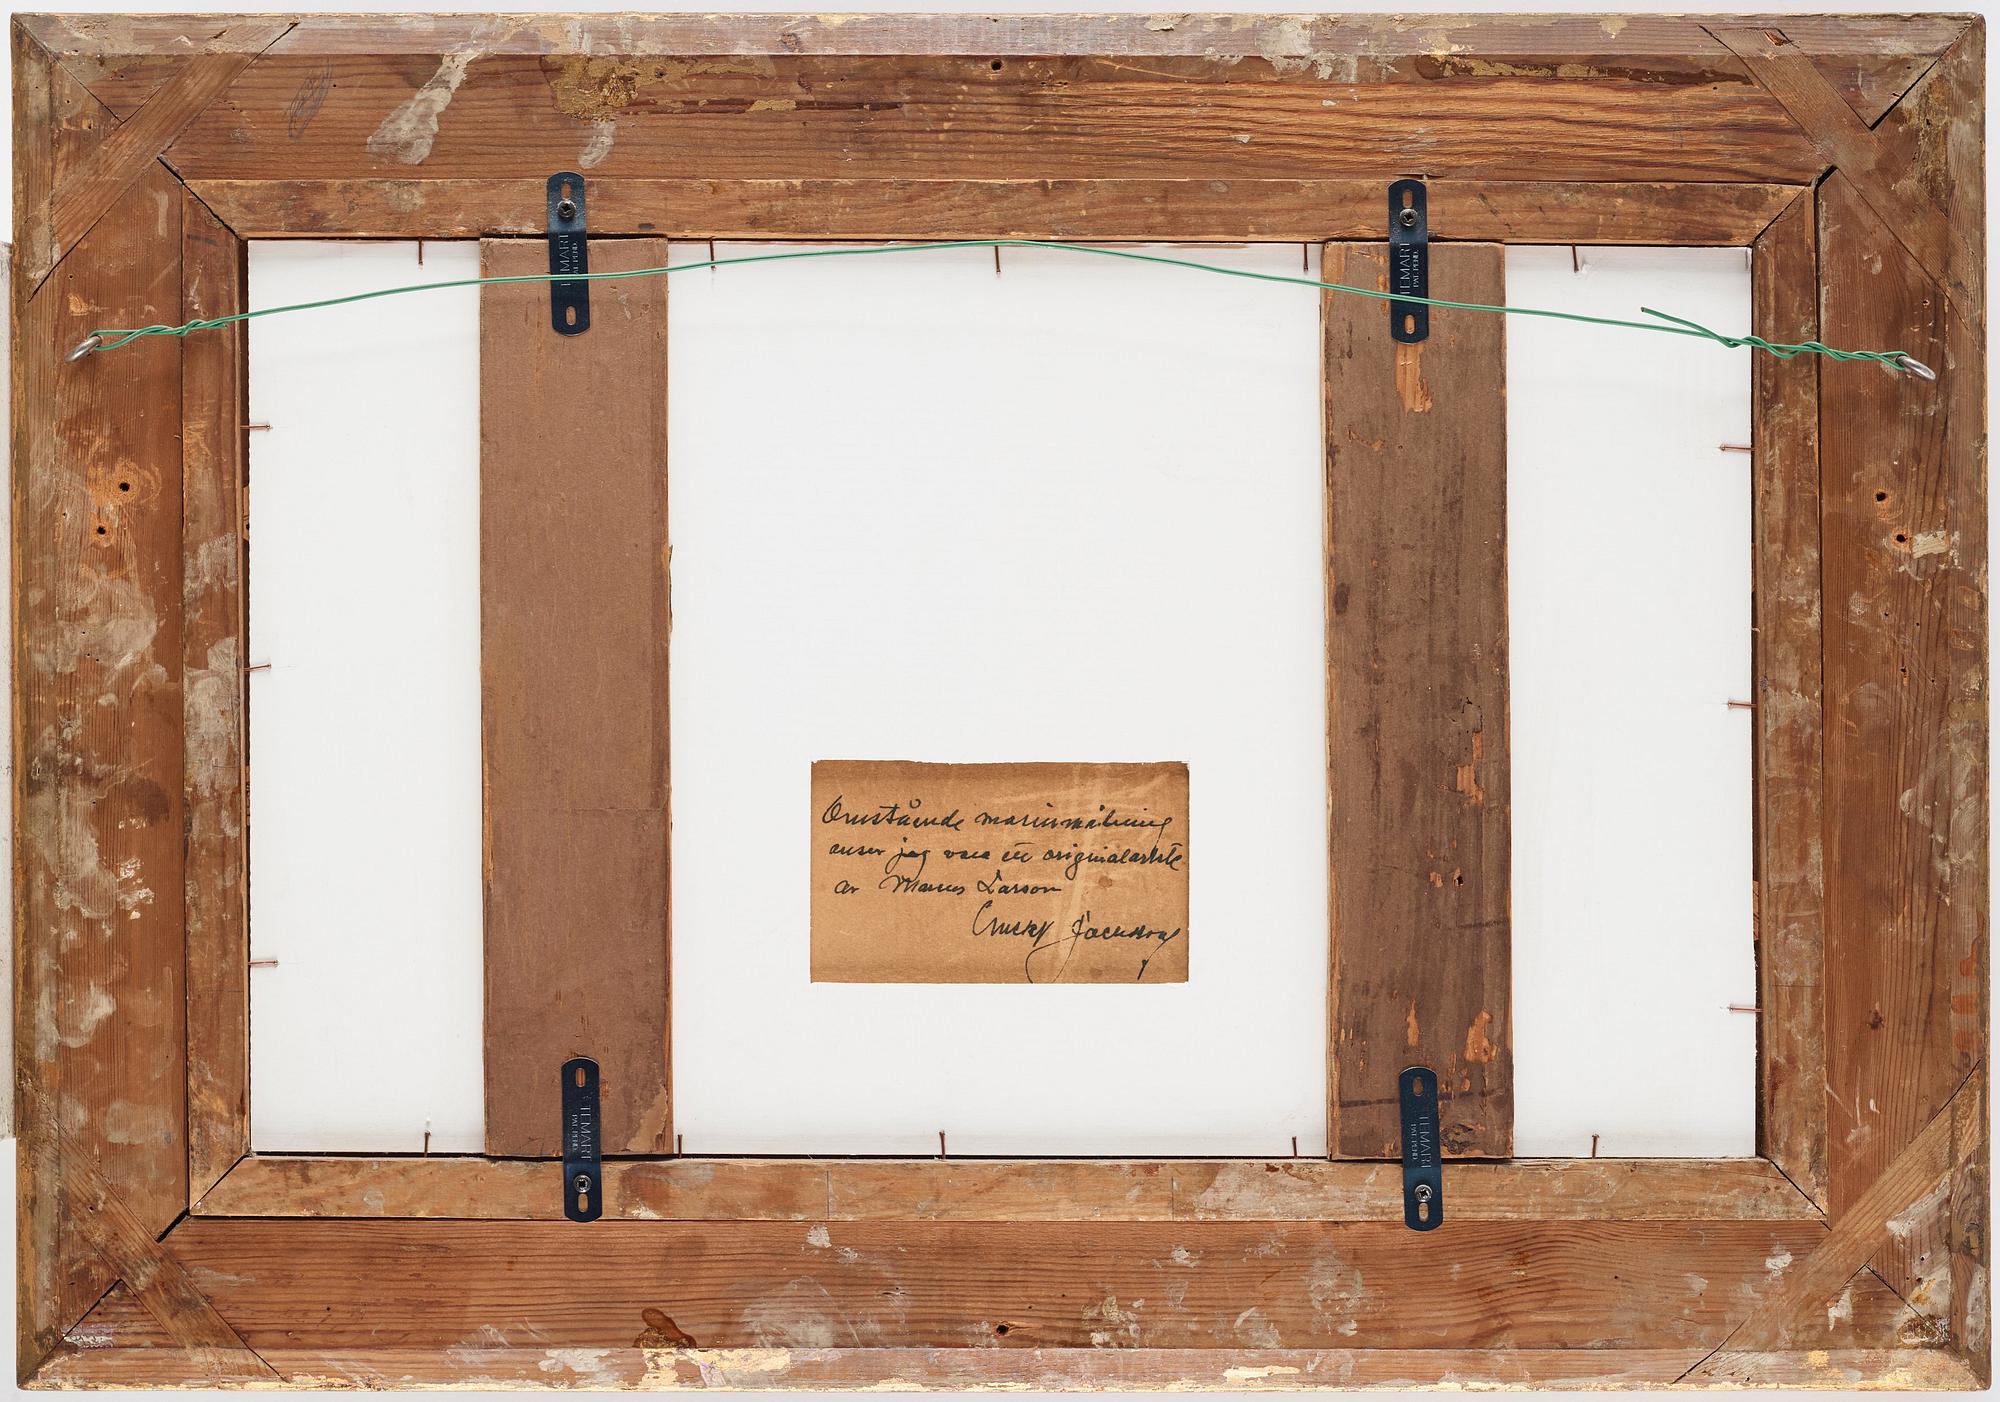 TEMART
PAT. PEND.
TEMART
PAT. PEND.
Omstående marinmålning
anser jag vara ett originalarbete
av Marcus Larson
TEMART
PAT. PEND.
TEMART
PAT. PEND.